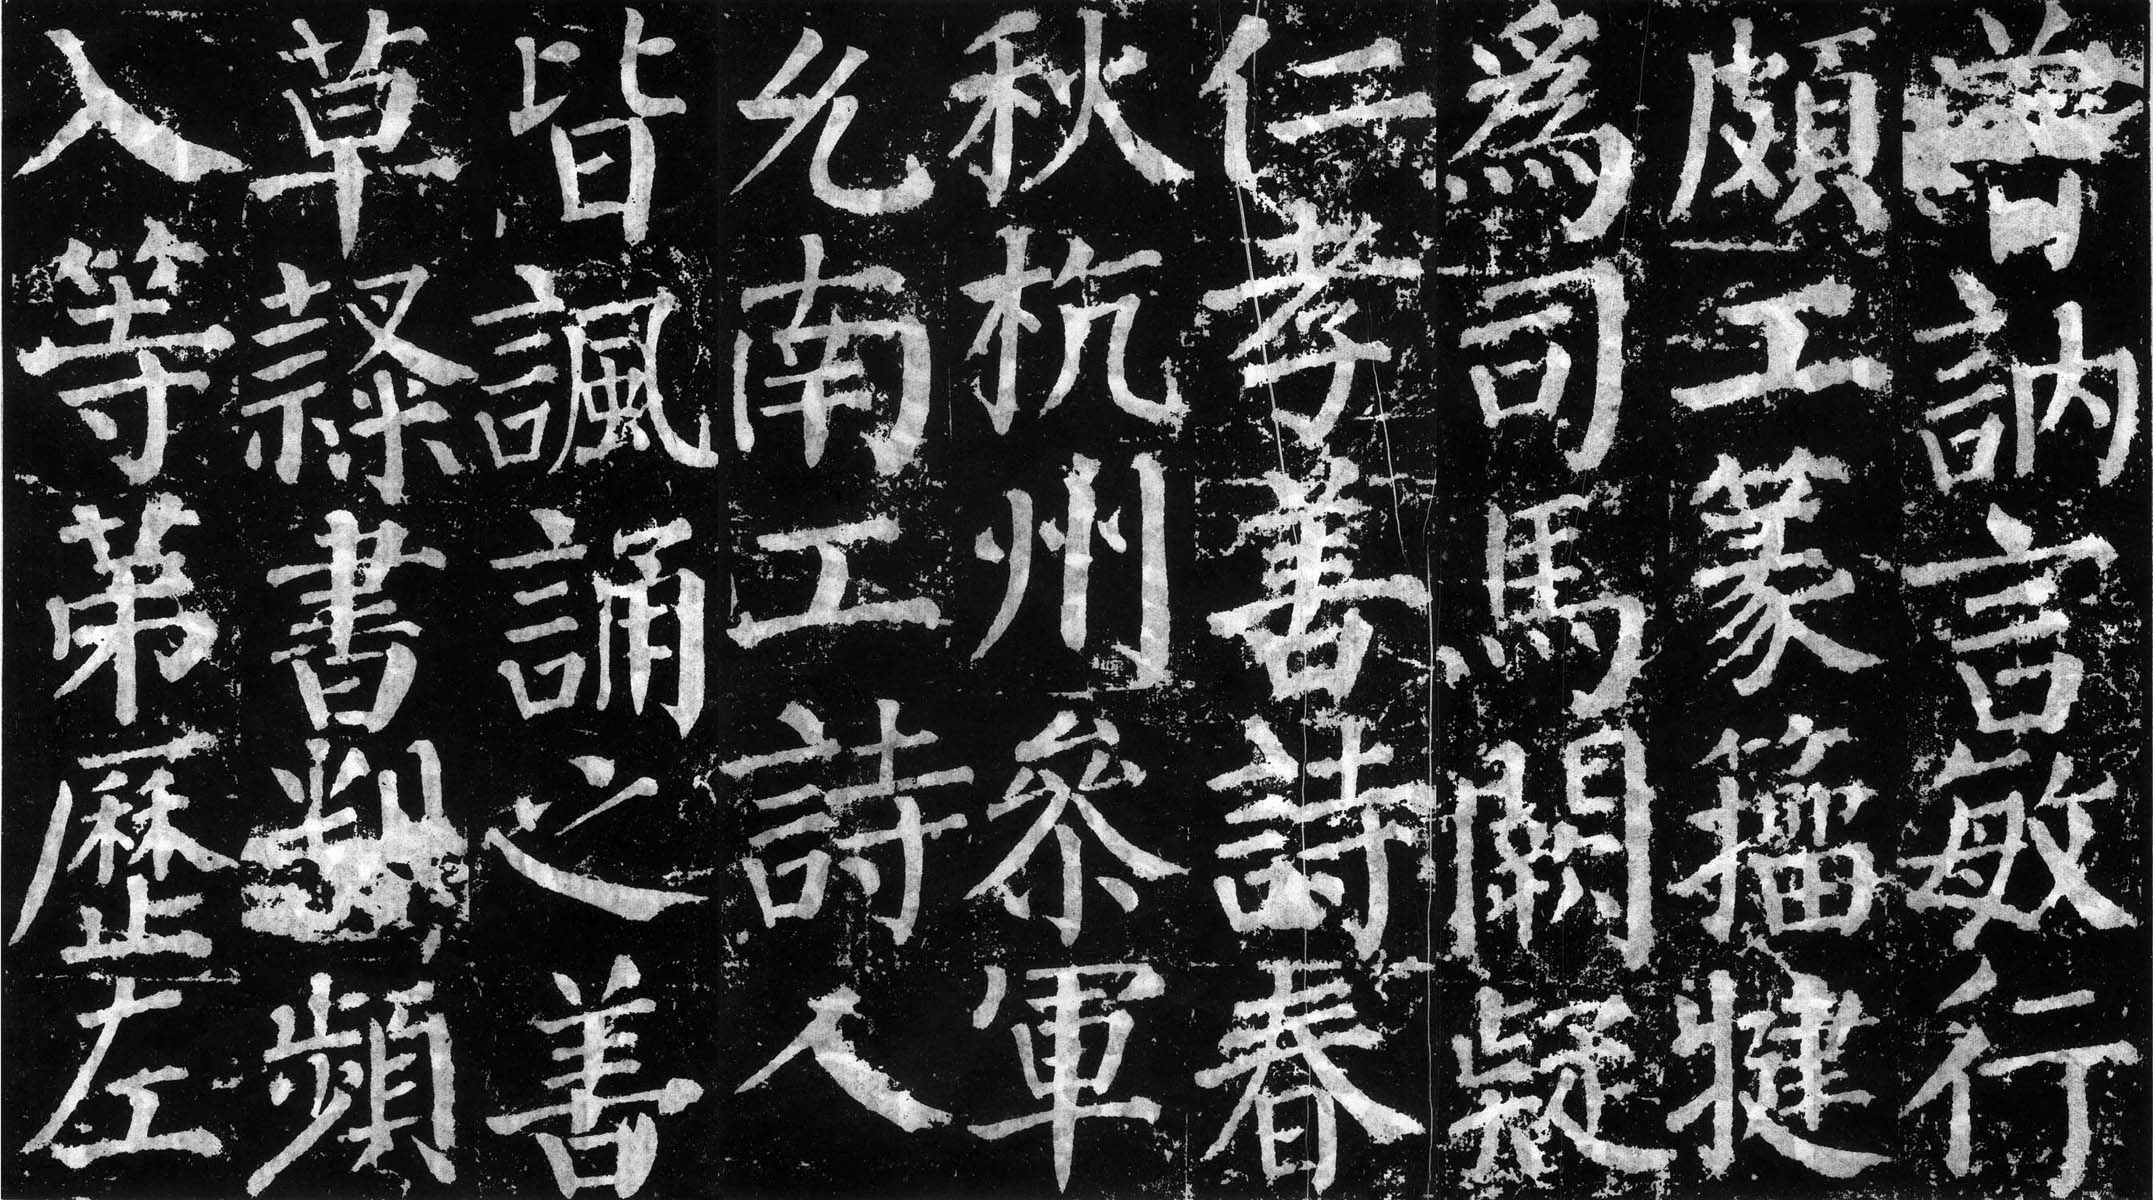 曾訥言敏行
頗工篆籀犍
爲司馬闕疑
仁孝善詩春
秋杭州參軍
允南工詩人
皆諷誦之善
草隸書判頻
入等第歷左